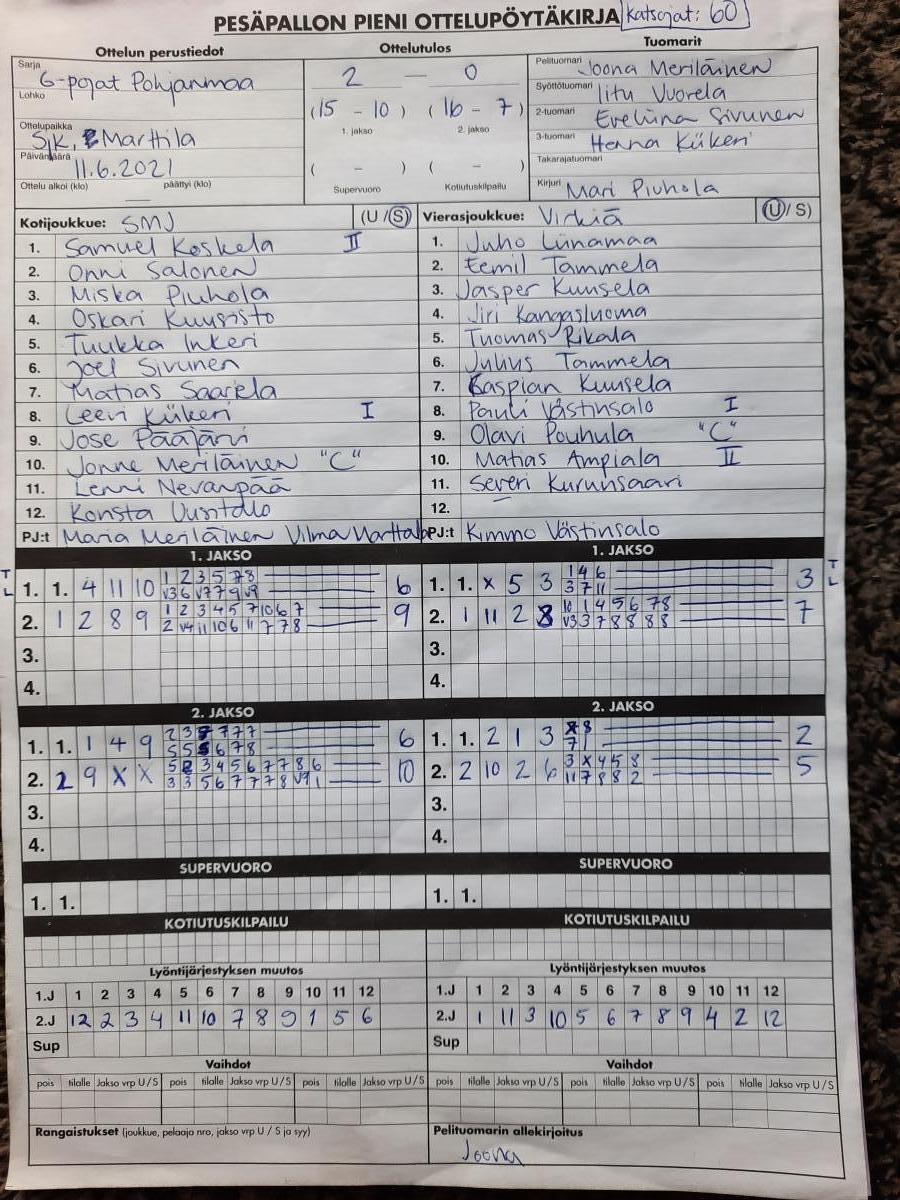 PESÄPALLON PIENI OTTELUPÖYTÄKIRJA Katsojat: 60
Ottelun perustiedot
Sarja
G-pojat Pohjanmaa
Lohko
Ottelupaikka
SJK, Marttila
Päivämäärä
11.6.2021
Ottelu alkoi (klo) päättyi (klo)
Ottelutulos
2 — 0
(15 - 10) (16 - 7)
1. jakso 2. jakso
( - ) ( - )
Supervuoro Kotiutuskilpailu
Tuomarit
Pelituomari Joona Meriläinen
Syöttötuomari Iitu Vuorela
2-tuomari Eveliina Sivunen
3-tuomari Henna Kiikeri
Takarajatuomari
Kirjuri Mari Piuhola
Kotijoukkue: SMJ (U / S)
1. Samuel Koskela II
2. Onni Salonen
3. Miska Piuhola
4. Oskari Kuusisto
5. Tuukka Inkeri
6. Joel Sivunen
7. Matias Saarela
8. Leevi Kiikeri I
9. Jose Pääjärvi
10. Jonne Meriläinen "C"
11. Lenni Nevanpää
12. Konsta Uusitalo
PJ:t Maria Meriläinen Vilma Marttala
Vierasjoukkue: Virkiä (U / S)
1. Juho Liinamaa
2. Eemil Tammela
3. Jasper Kuusela
4. Jiri Kangasluoma
5. Tuomas Rikala
6. Julius Tammela
7. Kaspian Kuusela
8. Pauli Västinsalo I
9. Olavi Pouhula "C"
10. Matias Ampiala II
11. Severi Kurunsaari
12.
PJ:t Kimmo Västinsalo
1. JAKSO
T
L
1. 1. 4 11 10 1 2 3 5 7 8 6
V3 6 V7 7 9 V9
2. 1 2 8 9 1 2 3 4 5 7 10 6 7 9
2 V4 11 10 6 11 7 7 8
3.
4.
1. JAKSO
T
L
1. 1. X 5 3 1 4 6 3
3 7 11
2. 1 11 2 8 10 1 4 5 6 7 8 7
V3 3 7 8 8 8 8
3.
4.
2. JAKSO
1. 1. 1 4 9 2 3 7 7 7 6
5 5 5 6 7 8
2. 2 9 X X 5 2 3 4 5 6 7 7 8 6 10
3 3 5 6 7 7 7 8 V9 1
3.
4.
2. JAKSO
1. 1. 2 1 3 8 2
7 1
2. 2 10 2 6 3 X 4 5 8 5
11 7 8 8 2
3.
4.
SUPERVUORO
1. 1.
SUPERVUORO
1. 1.
KOTIUTUSKILPAILU
KOTIUTUSKILPAILU
Lyöntijärjestyksen muutos
1.J 1 2 3 4 5 6 7 8 9 10 11 12
2.J 12 2 3 4 11 10 7 8 9 1 5 6
Sup
Lyöntijärjestyksen muutos
1.J 1 2 3 4 5 6 7 8 9 10 11 12
2.J 1 11 3 10 5 6 7 8 9 4 2 12
Sup
Vaihdot
pois tilalle Jakso vrp U / S pois tilalle Jakso vrp U / S pois tilalle Jakso vrp U / S
Vaihdot
pois tilalle Jakso vrp U / S pois tilalle Jakso vrp U / S pois tilalle Jakso vrp U / S
Rangaistukset (joukkue, pelaaja nro, jakso vrp U / S ja syy)
Pelituomarin allekirjoitus
Joona